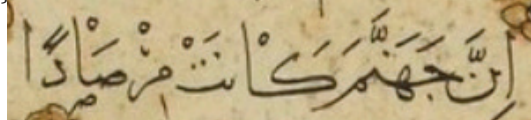 اِنَّ جَهَنَّمَ كَانَتْ مِرْصَادًا